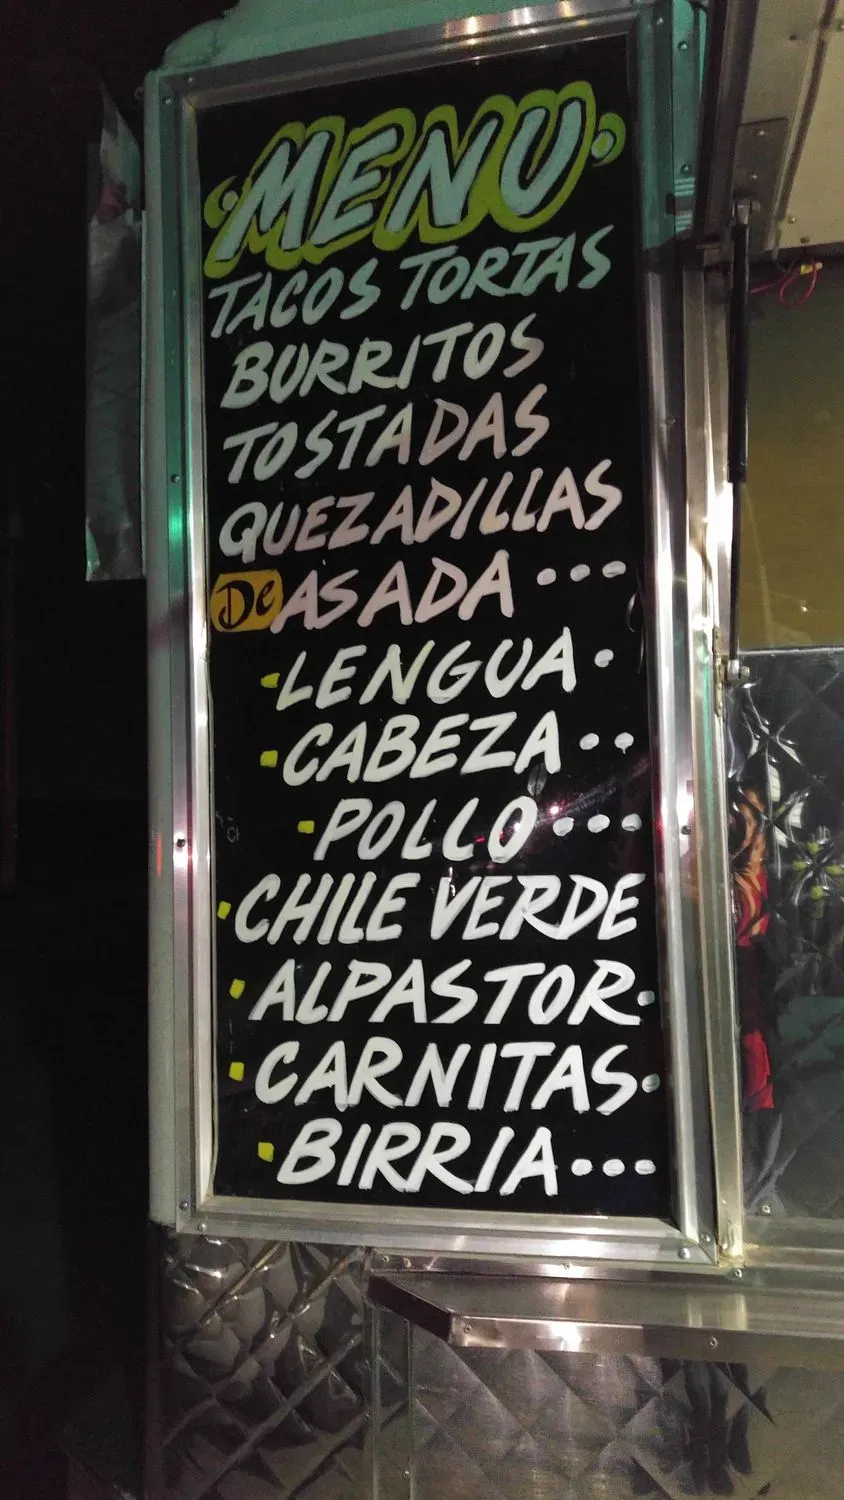 MENU
TACOS TORTAS
BURRITOS
TOSTADAS
QUEZADILLAS
De ASADA...
LENGUA.
CABEZA..
POLLO...
CHILE VERDE
ALPASTOR.
CARNITAS.
BIRRIA...